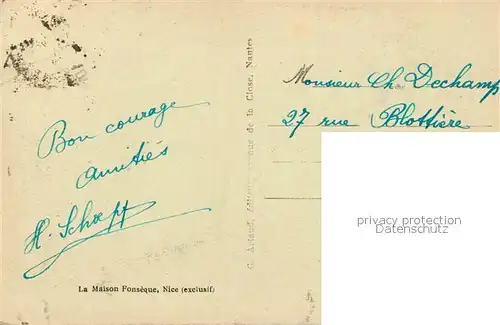 Bon courage
Amitiés
H. Schoepf
La Maison Fonsèque, Nice (exclusif)
G. Artaud, de la Close, Nantes
Monsieur Ch Dechamp
27 rue Blottière
privacy protection
(Markenschutz)